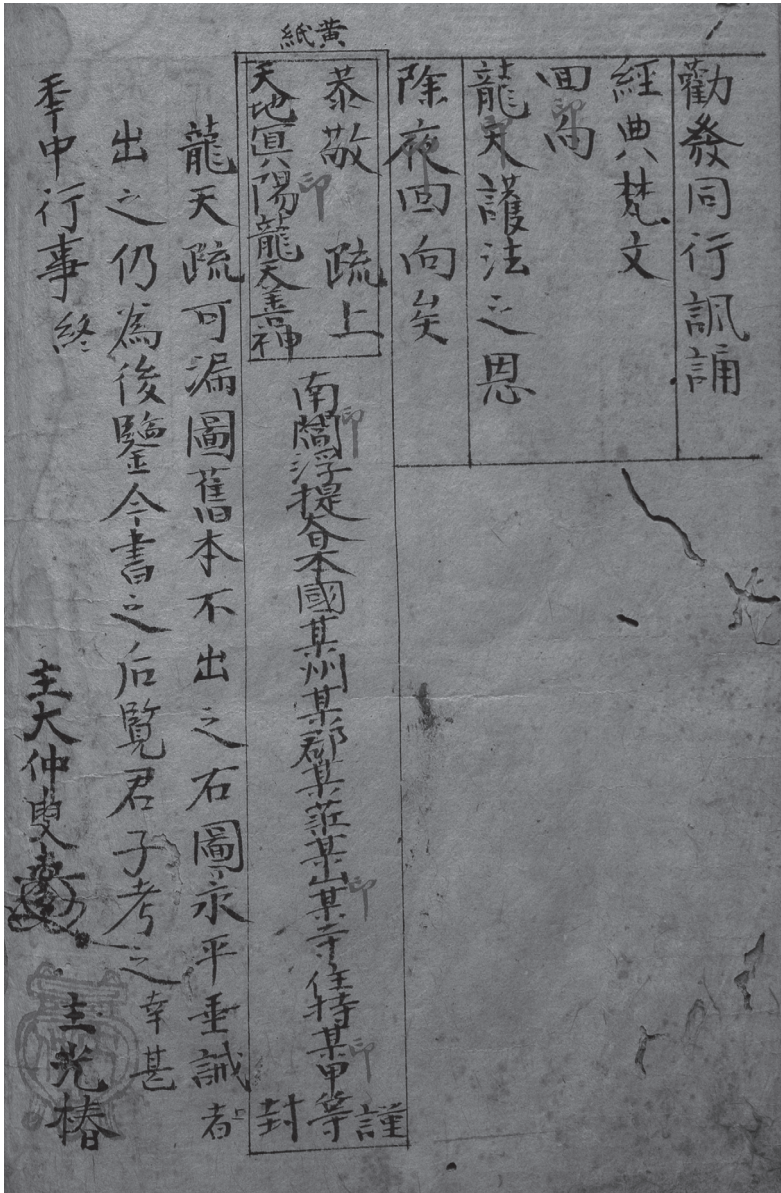 勸發同行諷誦
經典梵文
回向
印
龍天護法之恩
印
除夜回向矣
印
黄紙
恭敬 疏上
天地冥陽龍天善神
印
南閻浮提大日本國某州某郡某莊某山某寺住持某甲等謹封
印
印
印
龍天疏可漏圖舊本不出之右圖永平垂誡者
出之仍為後鑒今書之后覽君子考之幸甚
年中行事終
主大仲叟
主光椿